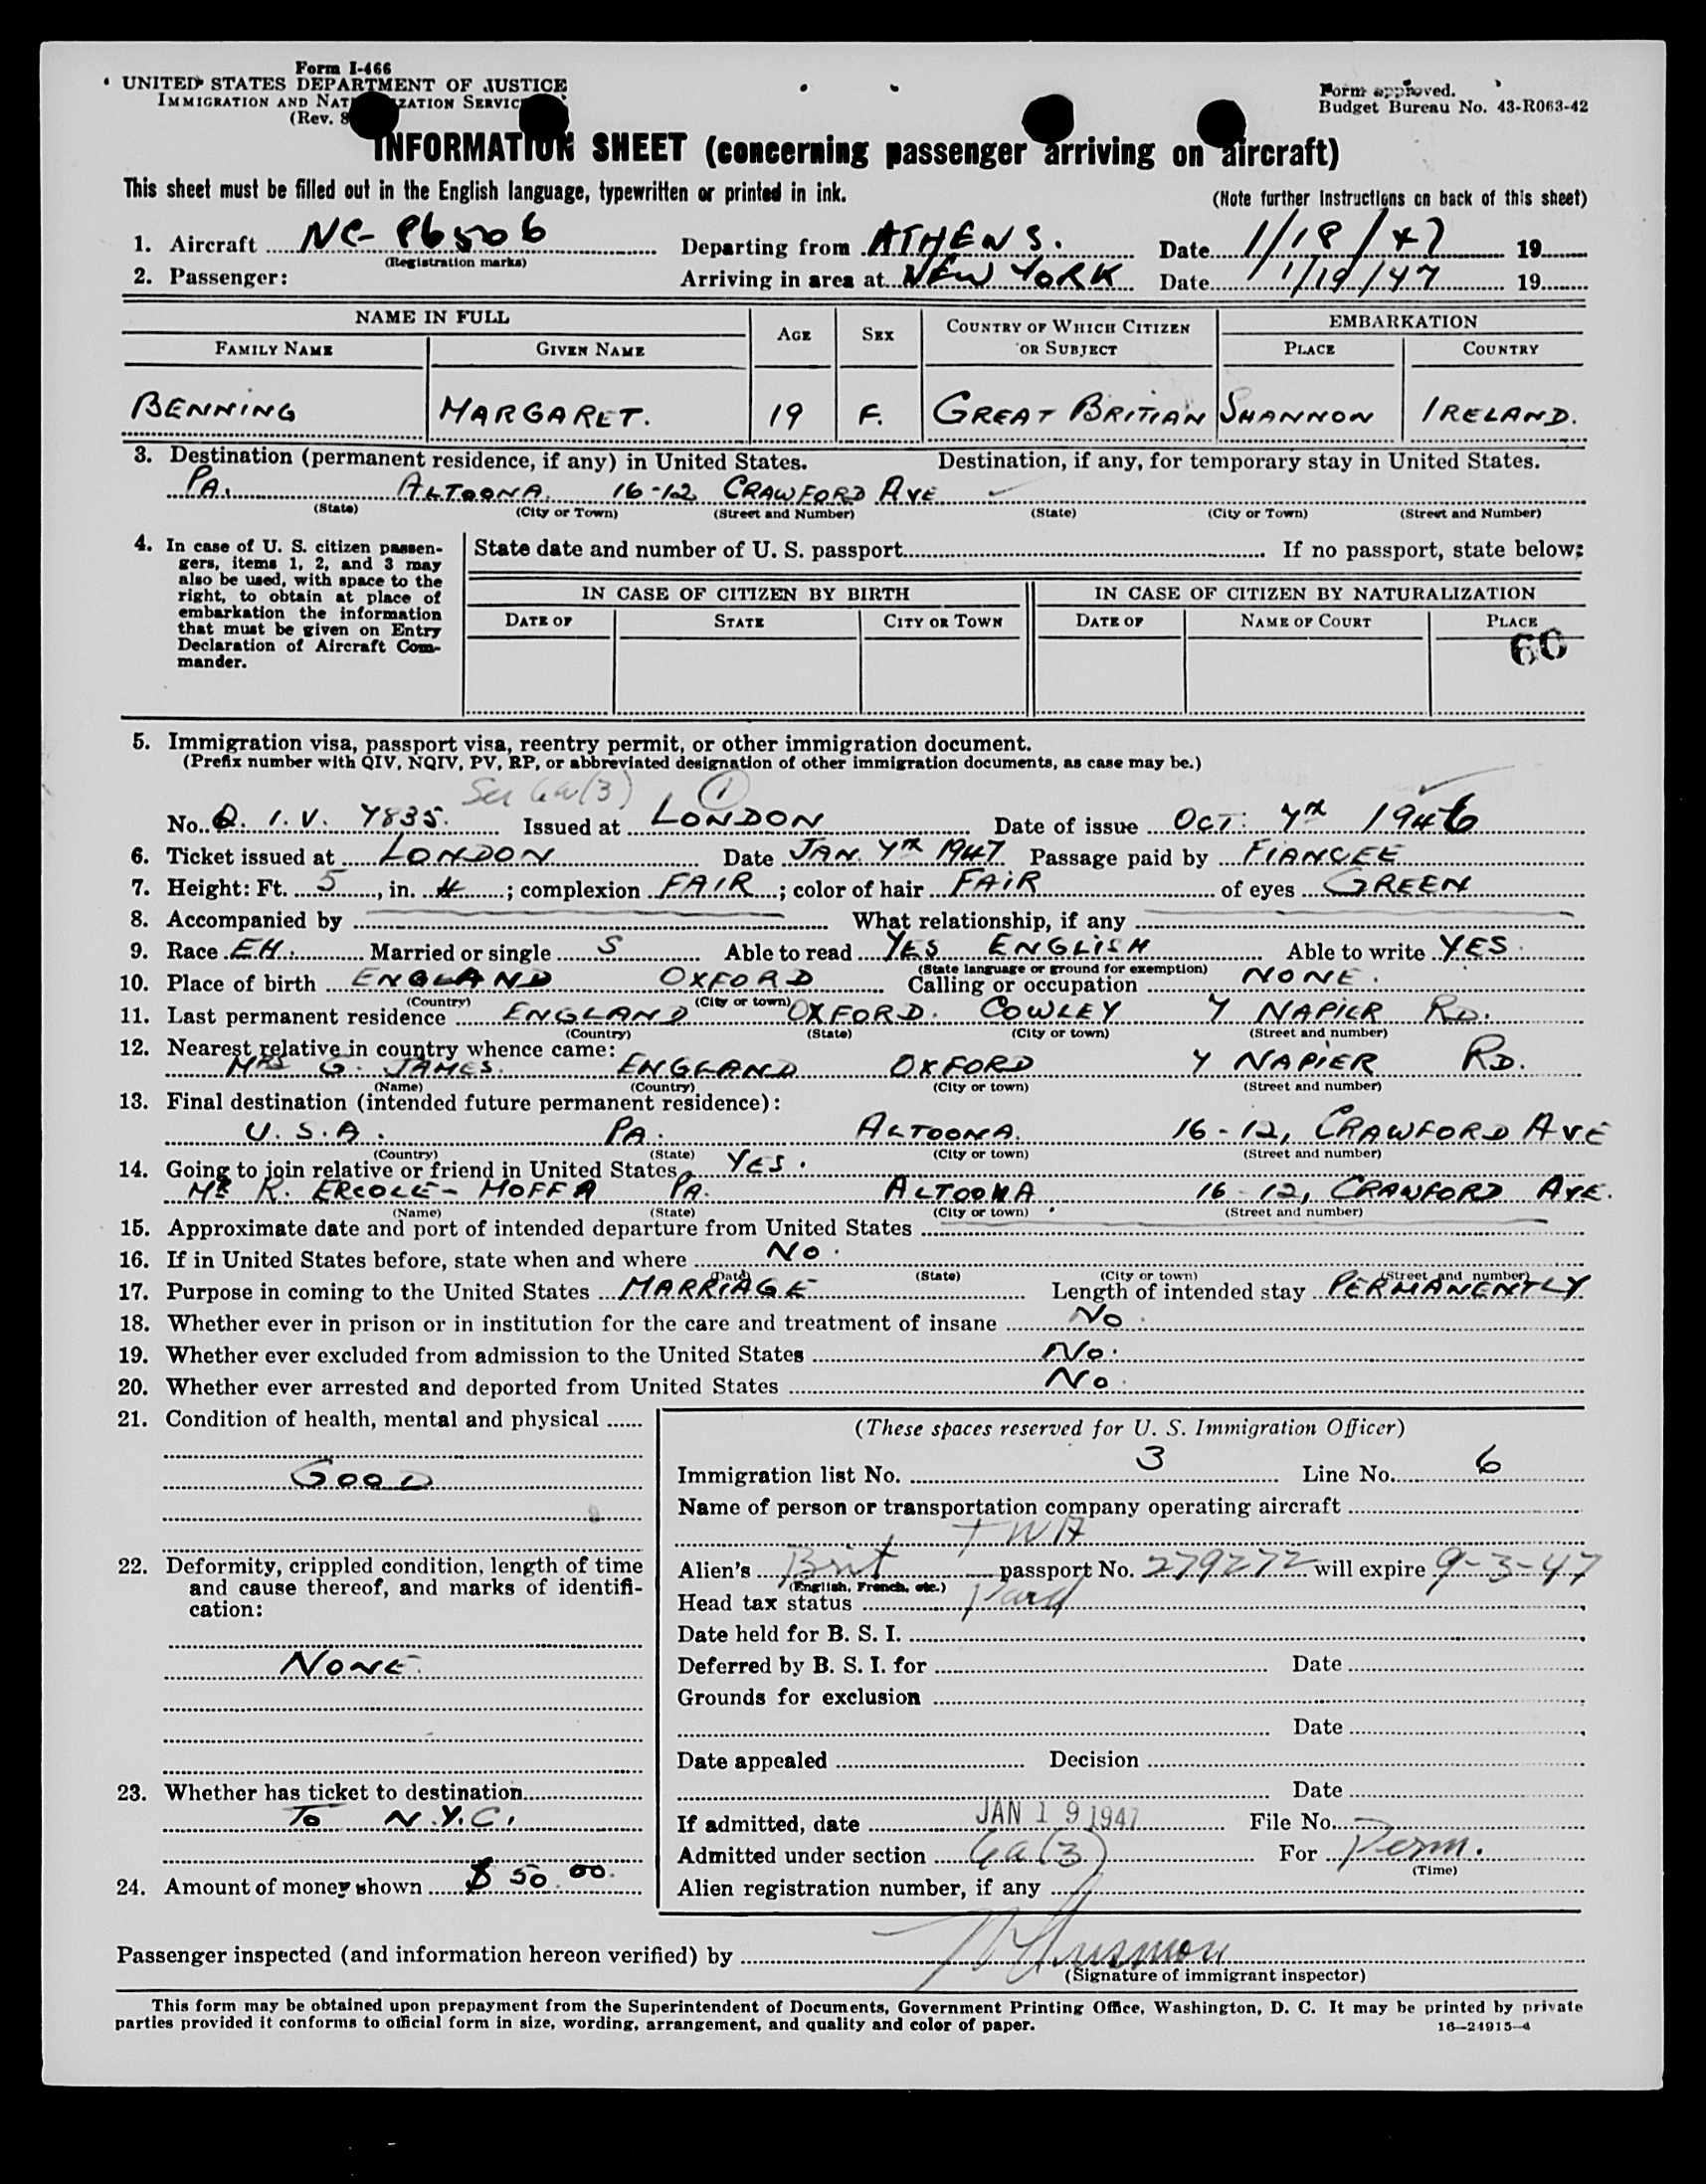 Form I-466
UNITED STATES DEPARTMENT OF JUSTICE
IMMIGRATION AND NAT ZATION SERVIC
(Rev. 8
Form approved.
Budget Bureau No. 43-R063-42
INFORMATION SHEET (concerning passenger arriving on aircraft)
This sheet must be filled out in the English language, typewritten or printed in ink.
(Note further instructions on back of this sheet)
1. Aircraft NC-86506 Departing from ATHENS. Date 1/18/47 19
(Registration marks)
2. Passenger: Arriving in area at NEW YORK Date 1/19/47 19
NAME IN FULL AGE SEX COUNTRY OF WHICH CITIZEN OR SUBJECT EMBARKATION
FAMILY NAME GIVEN NAME PLACE COUNTRY
BENNING MARGARET. 19 F. GREAT BRITIAN SHANNON IRELAND.
3. Destination (permanent residence, if any) in United States. Destination, if any, for temporary stay in United States.
PA. ALTOONA 16-12 CRAWFORD AVE
(State) (City or Town) (Street and Number) (State) (City or Town) (Street and Number)
4. In case of U. S. citizen passen-
gers, items 1, 2, and 3 may
also be used, with space to the
right, to obtain at place of
embarkation the information
that must be given on Entry
Declaration of Aircraft Com-
mander.
State date and number of U. S. passport If no passport, state below:
IN CASE OF CITIZEN BY BIRTH IN CASE OF CITIZEN BY NATURALIZATION
DATE OF STATE CITY OR TOWN DATE OF NAME OF COURT PLACE
60
5. Immigration visa, passport visa, reentry permit, or other immigration document.
(Prefix number with QIV, NQIV, PV, RP, or abbreviated designation of other immigration documents, as case may be.)
Sec 6a(3) 1
No. Q. I. V. 7835. Issued at LONDON Date of issue OCT: 7TH 1946
6. Ticket issued at LONDON Date JAN. 7TH 1947 Passage paid by FIANCEE
7. Height: Ft. 5, in. 4; complexion FAIR; color of hair FAIR of eyes GREEN
8. Accompanied by What relationship, if any
9. Race EH. Married or single S Able to read YES ENGLISH Able to write YES.
(State language or ground for exemption)
10. Place of birth ENGLAND OXFORD Calling or occupation NONE.
(Country) (City or town)
11. Last permanent residence ENGLAND OXFORD. COWLEY 7 NAPIER RD.
(Country) (State) (City or town) (Street and number)
12. Nearest relative in country whence came:
MRS G. JAMES. ENGLAND OXFORD 7 NAPIER RD.
(Name) (Country) (City or town) (Street and number)
13. Final destination (intended future permanent residence):
U. S. A. PA. ALTOONA. 16-12, CRAWFORD AVE
(Country) (State) (City or town) (Street and number)
14. Going to join relative or friend in United States YES.
MR R. ERCOLE-MOFFA PA. ALTOONA 16-12, CRAWFORD AVE.
(Name) (State) (City or town) (Street and number)
15. Approximate date and port of intended departure from United States
16. If in United States before, state when and where No.
(Date) (State) (City or town) (Street and number)
17. Purpose in coming to the United States MARRIAGE Length of intended stay PERMANENTLY
18. Whether ever in prison or in institution for the care and treatment of insane No.
19. Whether ever excluded from admission to the United States No.
20. Whether ever arrested and deported from United States No.
21. Condition of health, mental and physical
GOOD
22. Deformity, crippled condition, length of time
and cause thereof, and marks of identifi-
cation:
NONE.
23. Whether has ticket to destination
TO N.Y.C.
24. Amount of money shown $50.00.
(These spaces reserved for U. S. Immigration Officer)
Immigration list No. 3 Line No. 6
Name of person or transportation company operating aircraft
TWA
Alien's Brit passport No. 279272 will expire 9-3-47
(English, French, etc.)
Head tax status Paid
Date held for B. S. I.
Deferred by B. S. I. for Date
Grounds for exclusion
Date
Date appealed Decision
Date
If admitted, date JAN 19 1947 File No.
Admitted under section 6a(3) For Perm.
(Time)
Alien registration number, if any
Passenger inspected (and information hereon verified) by
(Signature of immigrant inspector)
This form may be obtained upon prepayment from the Superintendent of Documents, Government Printing Office, Washington, D. C. It may be printed by private
parties provided it conforms to official form in size, wording, arrangement, and quality and color of paper.
16—24915-4